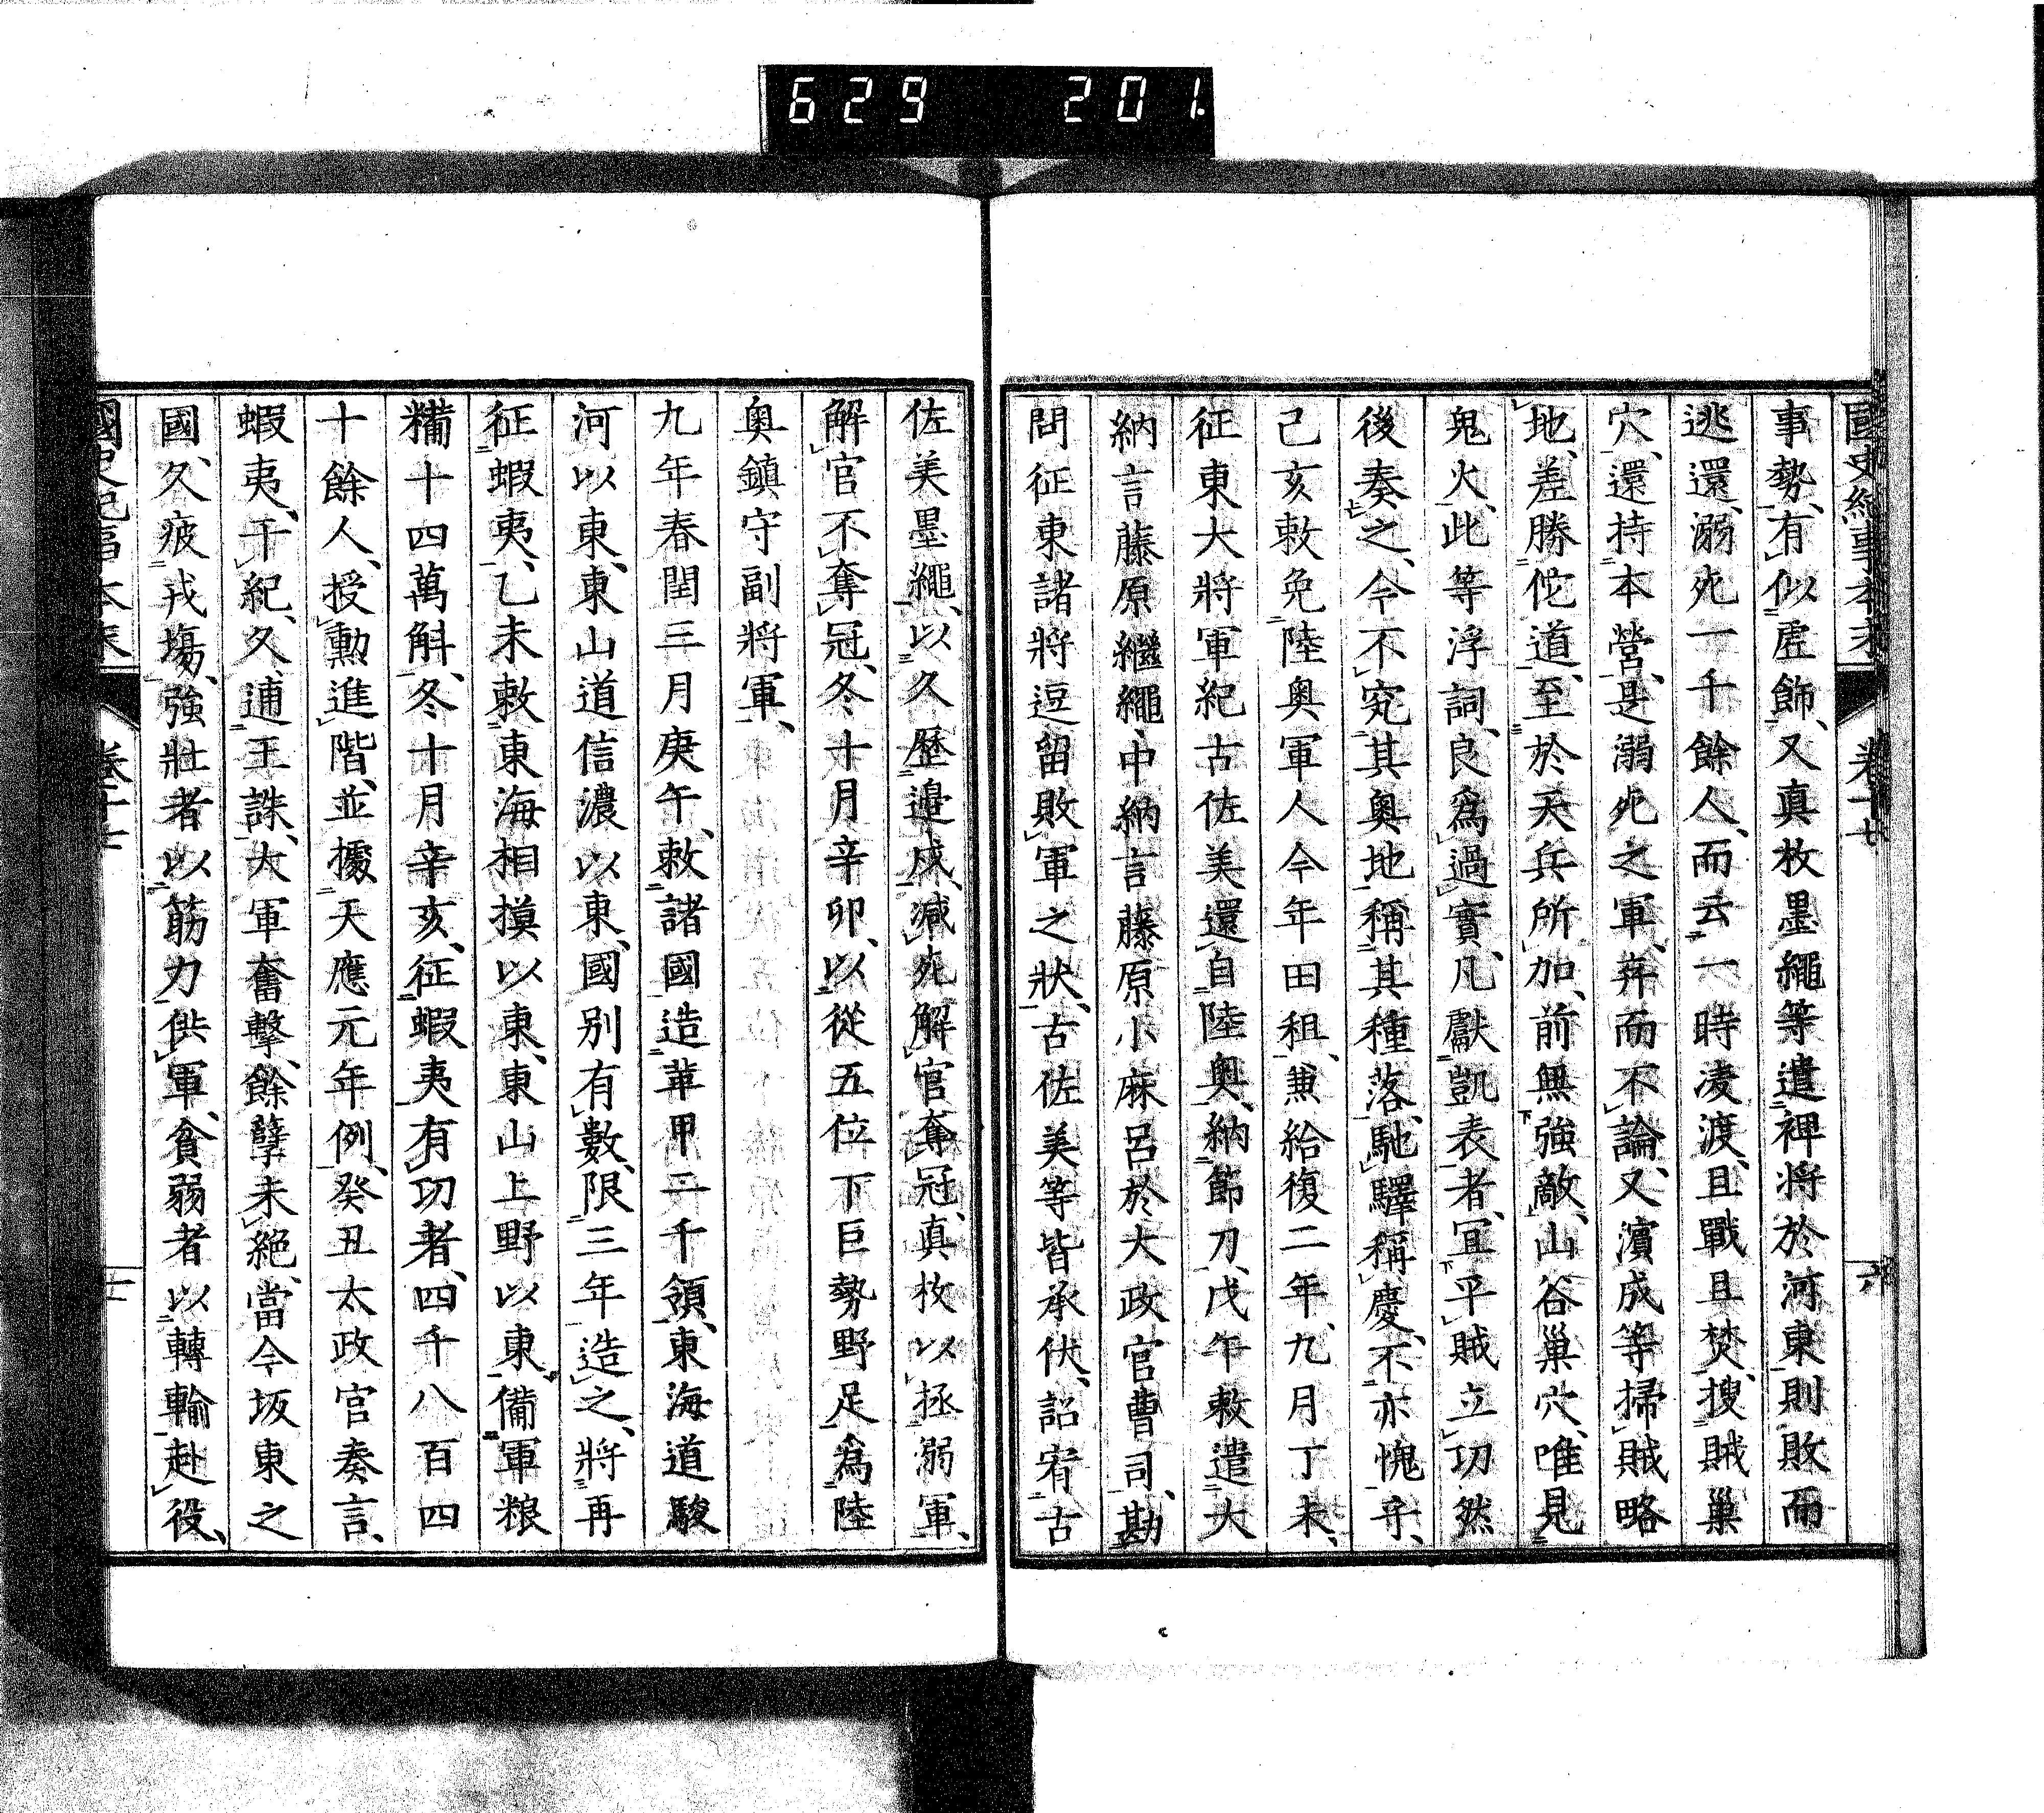 629 201
國史紀事本末 卷十七 六
事勢、有似虛飾、又真枚墨繩等遣裨將於河東則敗而
逃還、溺死一千餘人、而云一時凌渡、且戰且焚、搜賊巢
穴、還持本營、是溺死之軍、弃而不論、又濱成等掃賊略
地、差勝佗道、至於天兵所加、前無強敵、山谷巢穴、唯見
鬼火、此等浮詞、良爲過實、凡獻凱表者、宜平賊立功然
後奏之、今不究其奧地、稱其種落、馳驛稱慶、不亦愧乎、
己亥敕免陸奧軍人今年田租、兼給復二年、九月丁未、
征東大將軍紀古佐美還自陸奧、納節刀、戊午敕遣大
納言藤原繼繩、中納言藤原小麻呂於大政官曹司、勘
問征東諸將逗留敗軍之狀、古佐美等皆承伏、詔宥古
佐美墨繩、以久歷邊戍、減死解官奪冠、真枚以拯溺軍、
解官不奪冠、冬十月辛卯、以從五位下巨勢野足爲陸
奧鎮守副將軍、
九年春閏三月庚午、敕諸國造革甲二千領、東海道駿
河以東、東山道信濃以東、國別有數、限三年造之、將再
征蝦夷、乙未敕東海相摸以東、東山上野以東、備軍粮
糒十四萬斛、冬十月辛亥、征蝦夷有功者、四千八百四
十餘人、授勳進階、並據天應元年例、癸丑太政官奏言、
蝦夷、干紀、久逋王誅、大軍奮擊、餘孽未絕、當今坂東之
國、久疲戎場、強壯者以筋力供軍、貧弱者以轉輸赴役、
國史紀事本末 卷十七